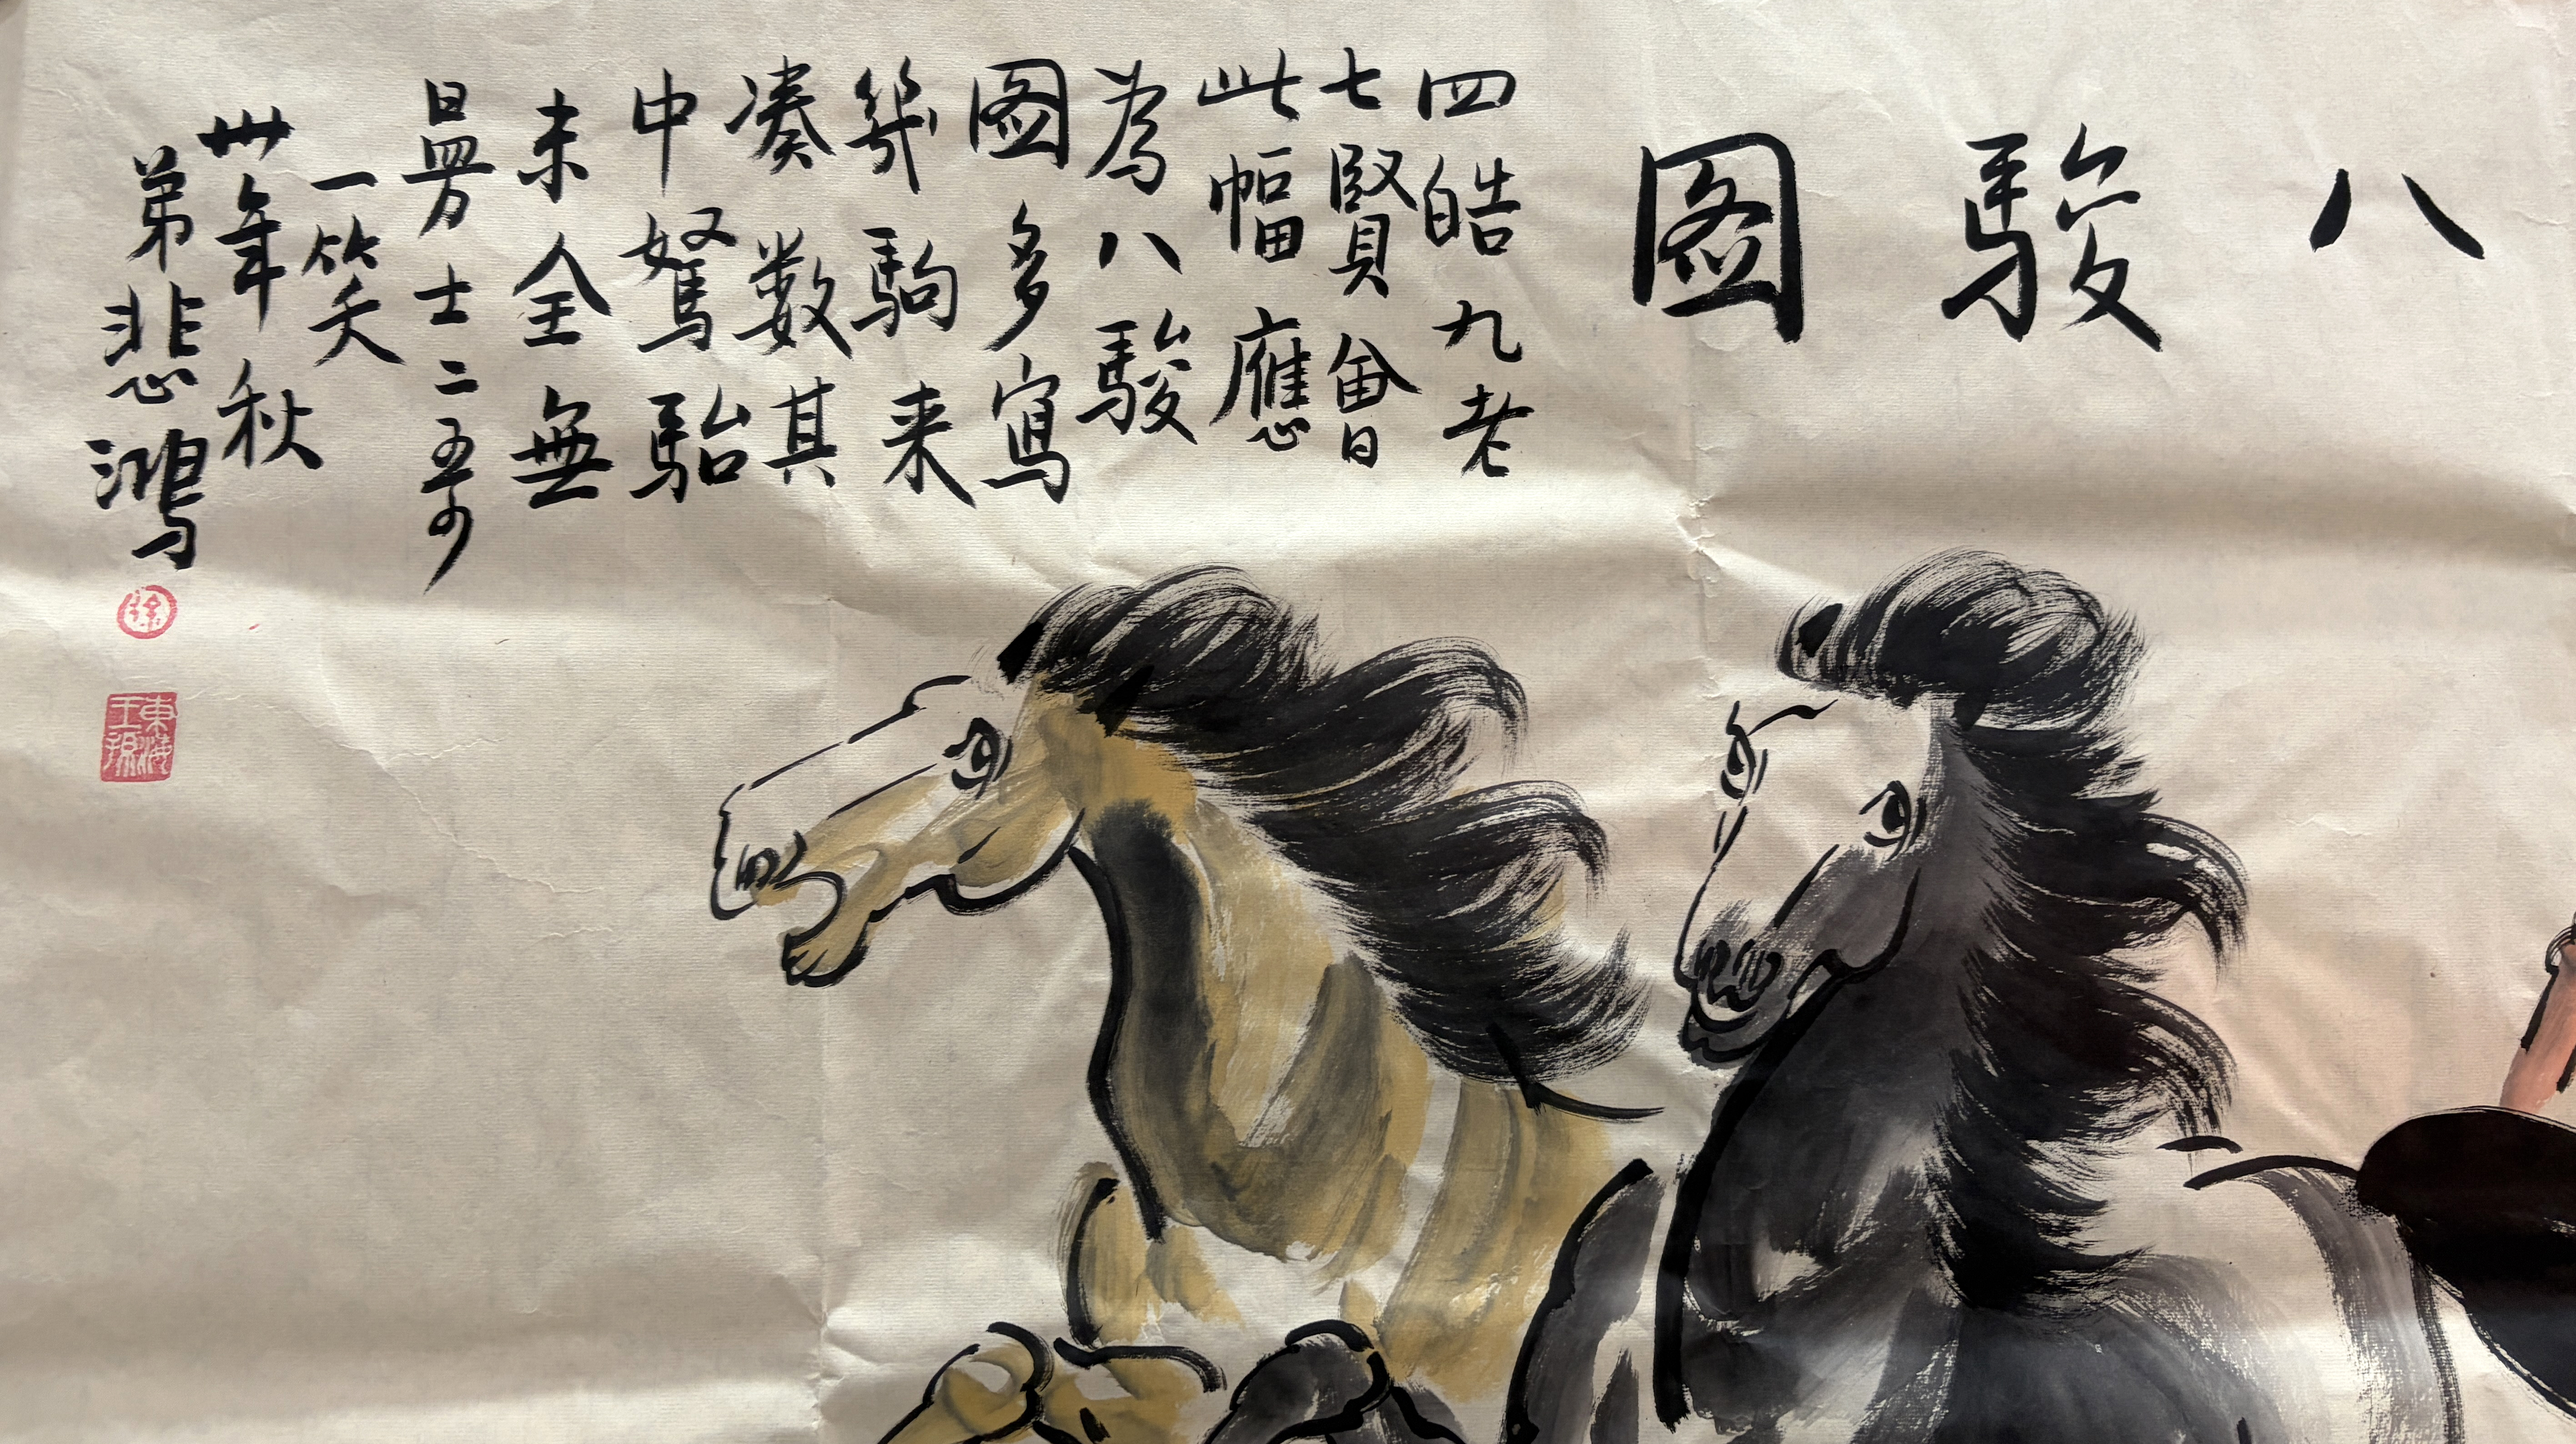 八駿图
四皓九老
七賢會
此幅應
為八駿
图多寫
幾駒来
凑数其
中駑駘
未全無
士二
一笑
卅年秋
弟悲鴻
徐
東海王孫